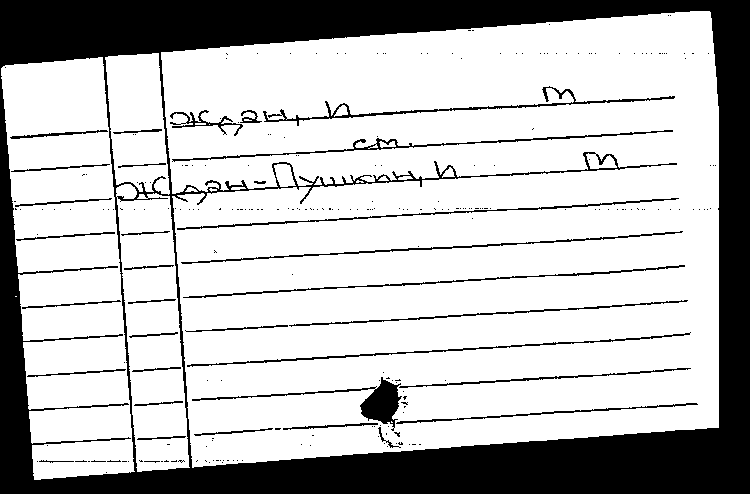 Ждан, И M
см.
Ждан-Пушкин, И M